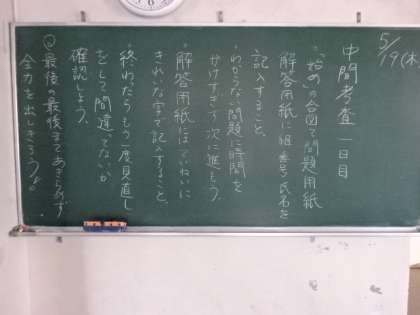 5/19(木)
中間考査一日目
・「始め」の合図で問題用紙
解答用紙に組、番号、氏名を
記入すること。
・わからない問題に時間を
かけすぎず次に進もう。
・解答用紙にはていねいに
きれいな字で記入すること。
・終わったらもう一度見直し
をして間違ってないか
確認しよう。
◎最後の最後まであきらめず
全力を出しきろう!!